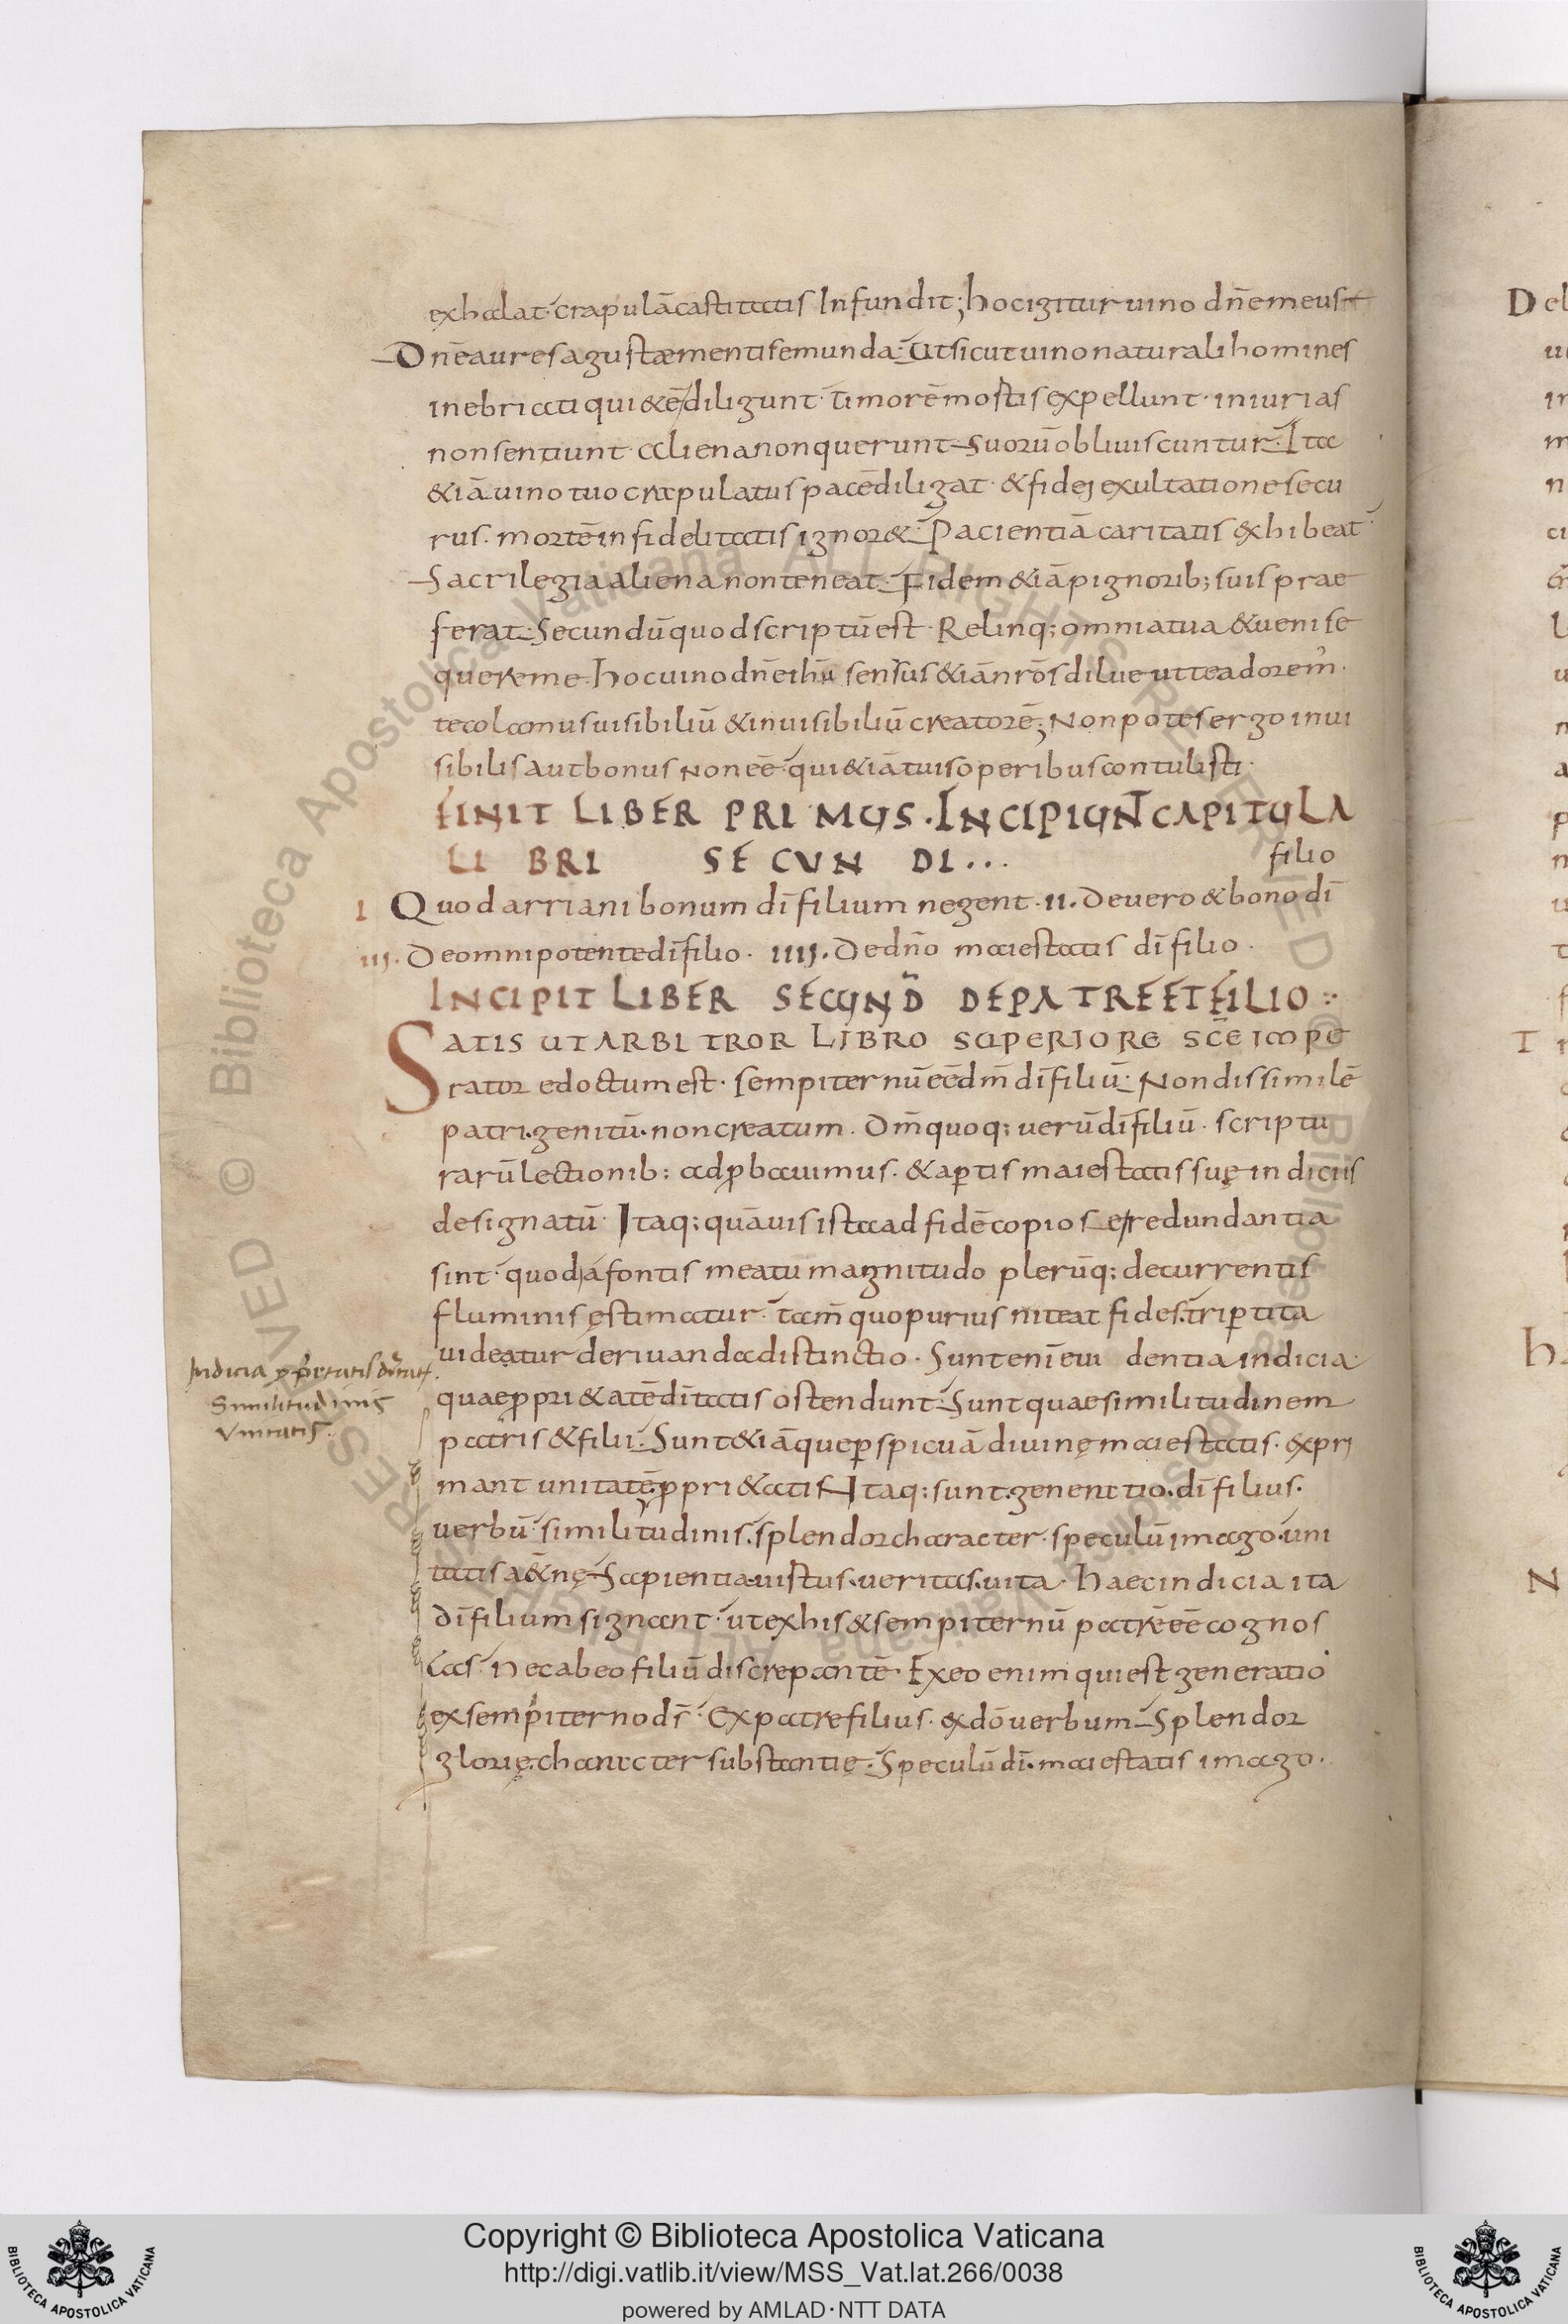 exhalat· crapulā castitatis Infundit; hoc igitur uino dn̄e meus
Dn̄e aures agustæ mentisemunda· Ut sicut uino naturali homines
inebriati qui&ē diligunt· timorē mostis expellunt· iniurias
non sentiunt aliena non querunt Suorū obliuiscuntur· Ita
&iā uino tuo crapulatus pacē diligat· & fidei exultatione secu
rus· mortē infidelitatis ignor&· Pacientiā caritatis exhibeat·
Sacrilegia aliena non teneat· Fidem &iā pignorib; suis prae
ferat· Secundū quod scriptū est· Relinq; omnia tua & ueni se
quere me· hoc uino dn̄e ihū sensus &iā nr̄os dilue ut te adorem·
te colamus uisibiliū & inuisibiliū creatorē; Non potes ergo inui
sibilis aut bonus non eē· qui &iā tuis operibus contulisti·
FINIT LIBER PRIMUS· INCIPIUNT CAPITULA
LIBRI SECUNDI...
filio
I Quod arriani bonum dī filium negent· II· De uero & bono dī
III· De omnipotente dī filio· IIII· De dn̄o maiestatis dī filio·
INCIPIT LIBER SECUND̄ DE PATRE ET FILIO
SATIS UT ARBITROR LIBRO SUPERIORE SC̄E IMPE
rator edoctum est· sempiternū eē dm̄ dī filiū· Non dissimilē
patri· genitū· non creatum· Dm̄ quoq; uerū dī filiū· scriptu
rarū lectionib; adꝓbauimus· & aꝑtis maiestatis suę indiciis
designatū· Itaq; quāuis ista ad fidē copiose redundantia
sint· quod a fontis meatu magnitudo plerūq; decurrentis
fluminis ęstimatur· tam̄ quo purius niteat fides· triꝑtita
uideatur deriuanda distinctio· Sunt enī eui dentia indicia
quae ꝓpri&atē dītatis ostendunt· Sunt quae similitudinem
patris & filii· Sunt &iā que ꝑspicuā diuinę maiestatis· expri
mant unitatē· ꝓpri&atis Itaq; sunt· generatio· dī filius·
uerbū· similitudinis· splendor character· speculū imago· uni
tatis a&nę Sapientia uistus· ueritas· uita· haec indicia ita
dī filium signant· ut ex his & sempiternū patrē eē cognos
cas· Nec ab eo filiū discrepantē· Ex eo enim qui est generatio
ex sempiterno ds̄· Ex patre filius· ex dō uerbum Splendor
glorię· character substantię· Speculū dī· maiestatis imago·
Indicia ꝓprietatis diuitat·
Similitudinis
Vnitatis·
D
T
N
Copyright © Biblioteca Apostolica Vaticana
http://digi.vatlib.it/view/MSS_Vat.lat.266/0038
powered by AMLAD·NTT DATA
BIBLIOTECA APOSTOLICA VATICANA
BIBLIOTECA APOSTOLICA VATICANA